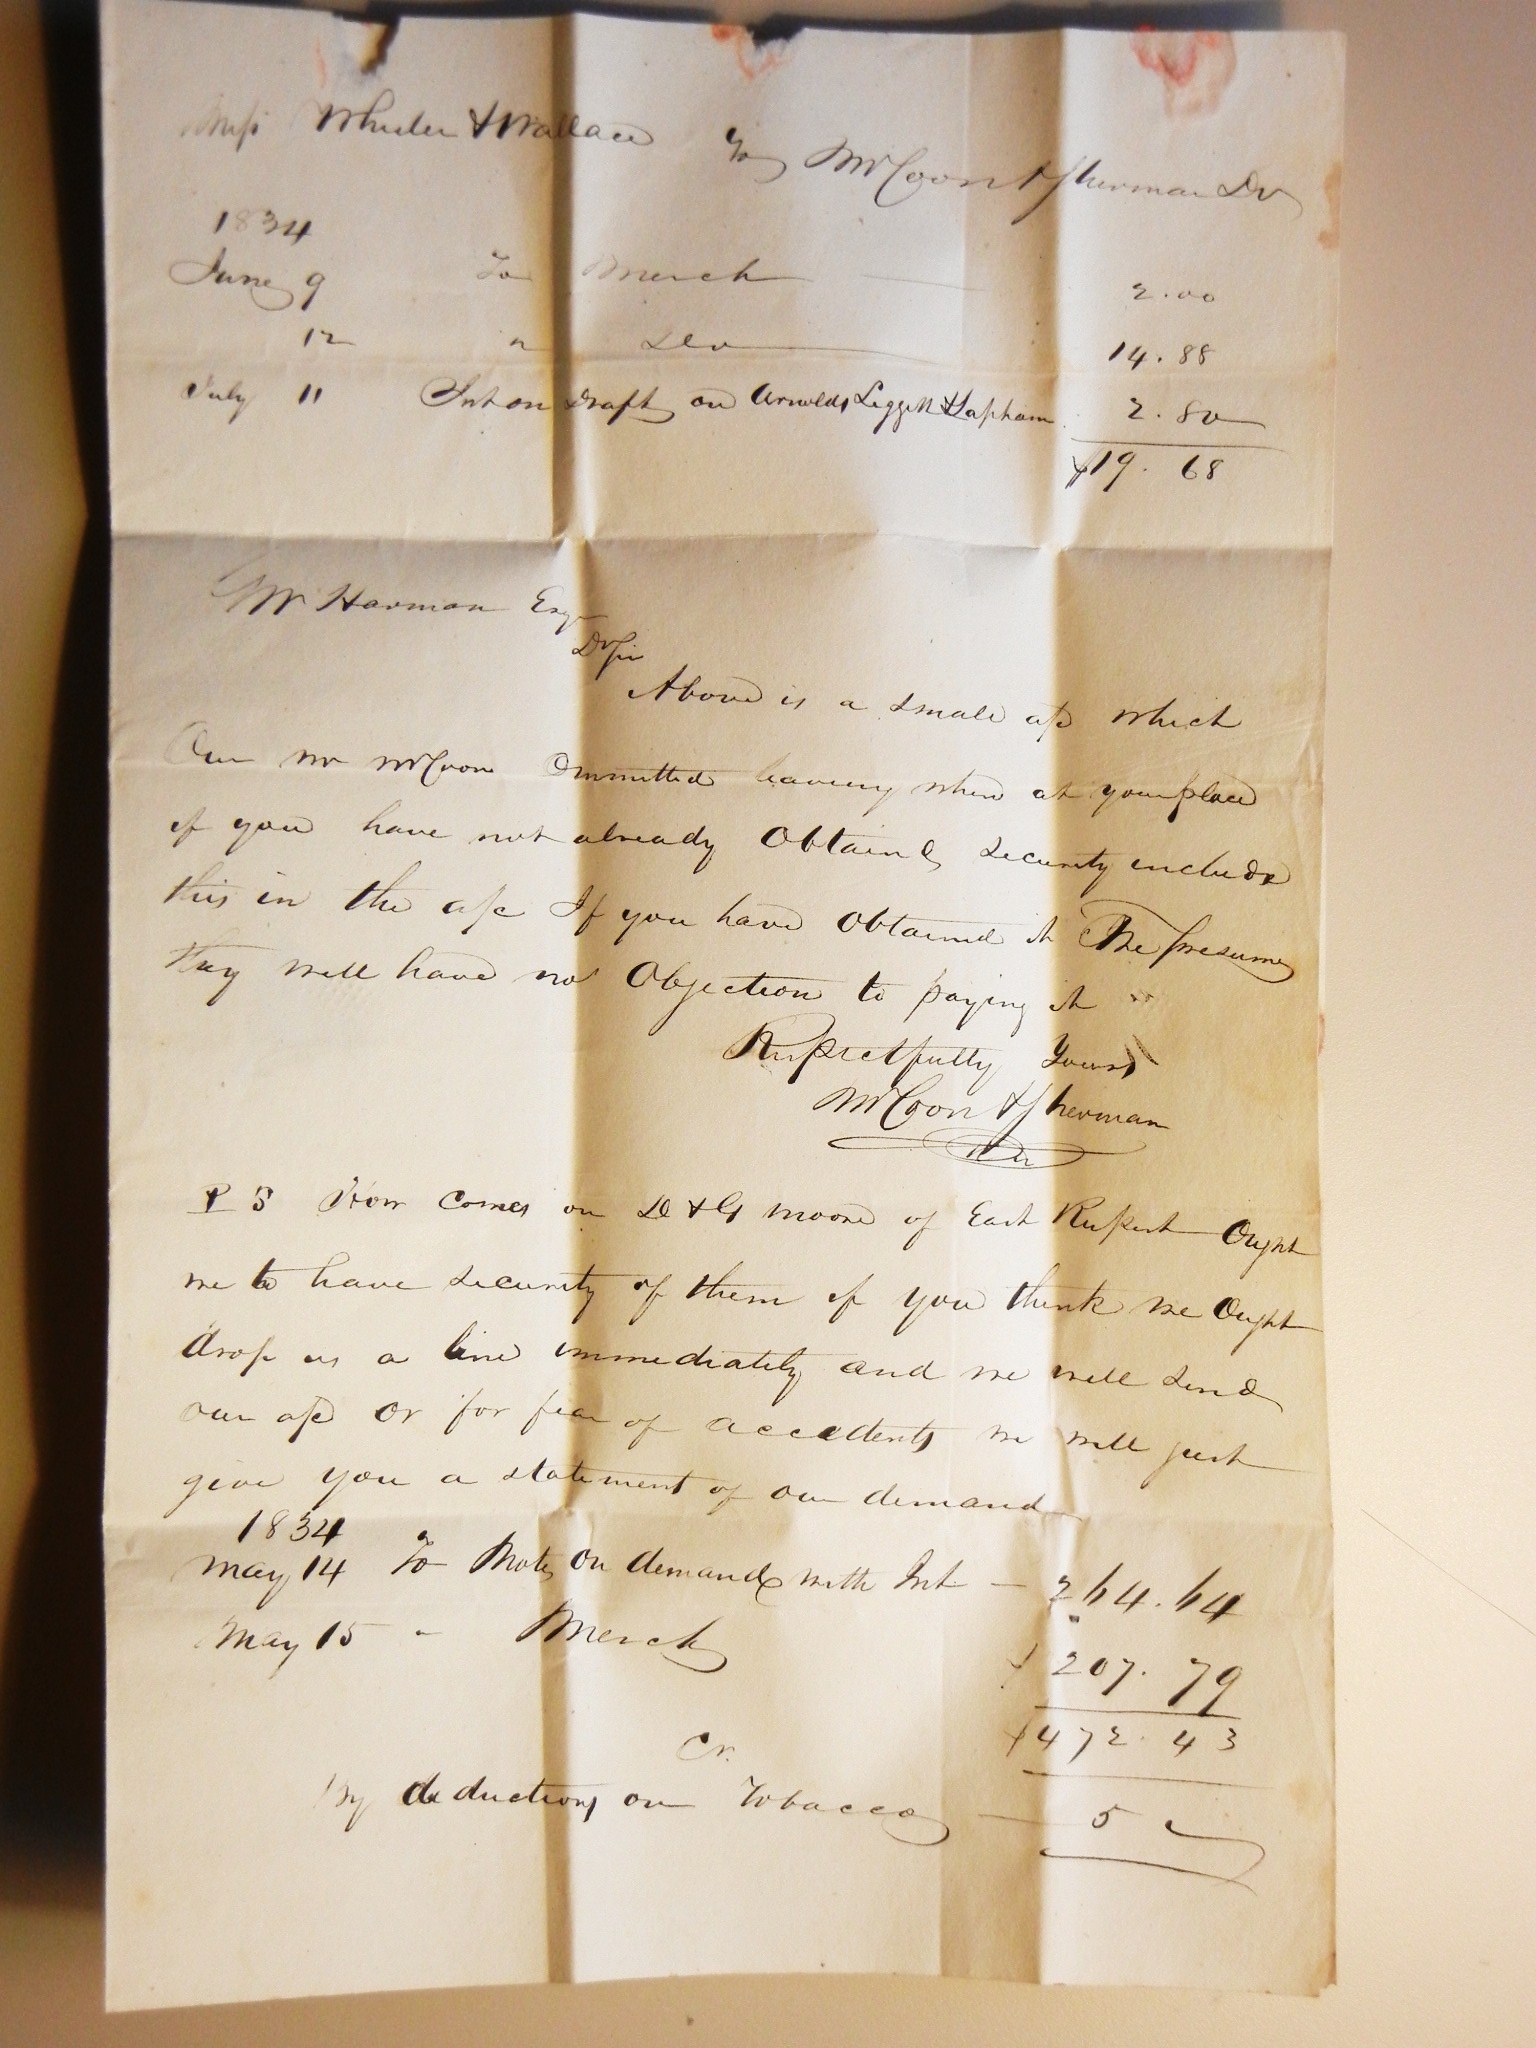 Messrs Wheeler & Wallace To McCoon & Sherman Dr
1834
June 9 To Merch 2.00
12 " Do 14.88
July 11 Int on Draft on Arnolds Leggett & Lapham 2.80
$19.68
Mr Harmon Esqr
Dr Sir
Above is a small a/c which
Our Mr McCoon Ommitted leaveing when at your place
if you have not already Obtaind security include
this in the a/c If you have Obtained it We presume
they will have no Objection to paying it
Respectfully Yours
McCoon & Sherman
P S How comes on D & G Moore of East Rupert Ought
we to have security of them if you think we Ought
drop us a line immediately and we will send
our a/c or for fear of accidents we will just
give you a statement of our demand
1834
May 14 To Note on demand with Int 264.64
May 15 " Merch 207.79
$472.43
Cr.
By deductions on Tobacco 5